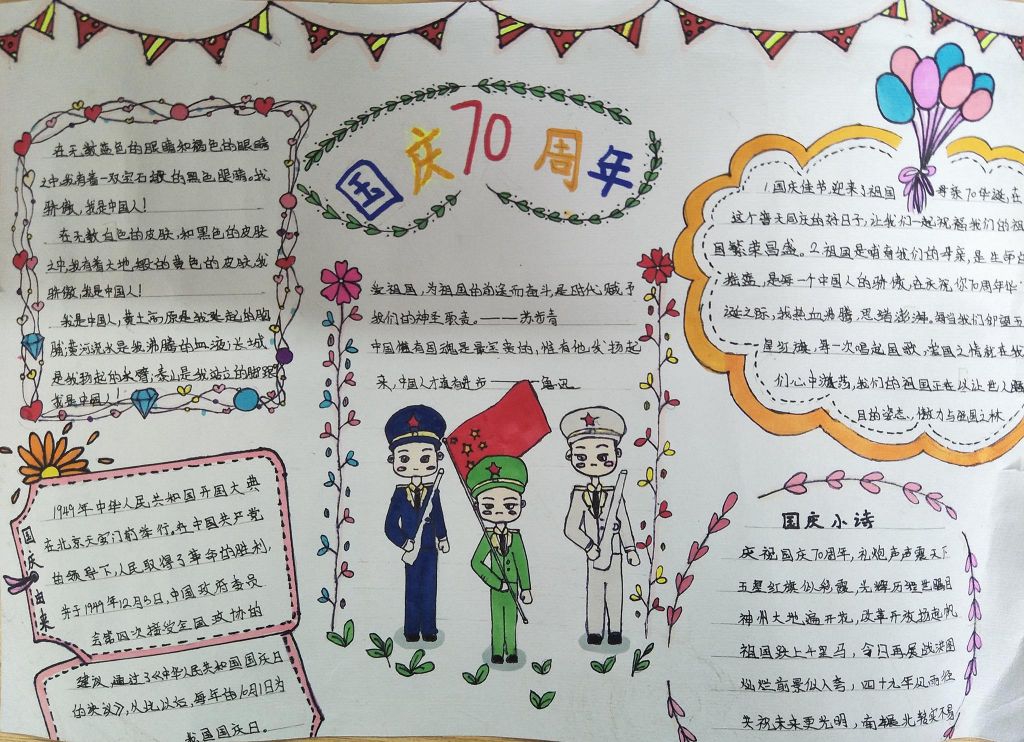 国庆70周年
在无数蓝色的眼睛和褐色的眼睛
之中,我有着一双宝石般的黑色眼睛,我
骄傲,我是中国人!
在无数白色的皮肤,和黑色的皮肤
之中,我有着大地般的黄色的皮肤,我
骄傲,我是中国人!
我是中国人,黄土高原是我挺起的胸
脯,黄河流水是我沸腾的血液,长城
是我扬起的手臂,泰山是我站立的脚跟
我是中国人!
国庆由来
1949年中华人民共和国开国大典
在北京天安门前举行。在中国共产党
的领导下,人民取得了革命的胜利,
并于1949年12月3日,中国政府委员
会第四次接受全国政协的
建议,通过了《中华人民共和国国庆日
的决议》,从此以后,每年的10月1日为
我国国庆日。
爱祖国,为祖国的前途而奋斗,是时代赋予
我们的神圣职责。——苏步青
中国惟有国魂是最宝贵的,惟有他发扬起
来,中国人才有真进步——鲁迅
1.国庆佳节,迎来了祖国母亲70华诞,在
这个普天同庆的好日子,让我们一起祝福我们的祖
国繁荣昌盛。2.祖国是哺育我们的母亲,是生命的
摇篮,是每一个中国人的骄傲,在庆祝你70周年华
诞之际,我热血沸腾,思绪澎湃。每当我们仰望五
星红旗,每一次唱起国歌,爱国之情就在我
们心中激荡,我们的祖国正在以让世人瞩
目的姿态,傲力与强国之林
国庆小诗
庆祝国庆70周年,礼炮声声震天下
五星红旗似彩霞,光辉历程世瞩目
神州大地遍开花,改革开放扬起帆
祖国跃上千里马,今日再展战决图
灿烂前景似入夸,四十九年风雨径
庆祝未来更光明,南振北转实不易